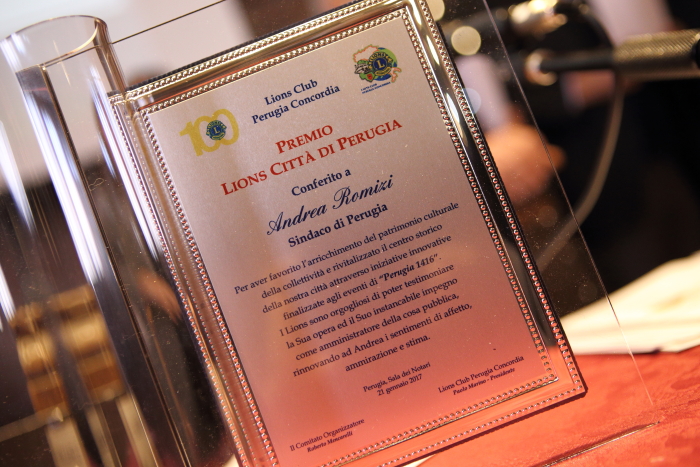 Lions Club
Perugia Concordia
100
PREMIO
LIONS CITTÀ DI PERUGIA
Conferito a
Andrea Romizi
Sindaco di Perugia
Per aver favorito l'arricchimento del patrimonio culturale
della collettività e rivitalizzato il centro storico
della nostra città attraverso iniziative innovative
finalizzate agli eventi di "Perugia 1416".
I Lions sono orgogliosi di poter testimoniare
la Sua opera ed il Suo instancabile impegno
come amministratore della cosa pubblica,
rinnovando ad Andrea i sentimenti di affetto,
ammirazione e stima.
Perugia, Sala dei Notari
21 gennaio 2017
Il Comitato Organizzatore
Roberto Mencarelli
Lions Club Perugia Concordia
Paola Marino - Presidente